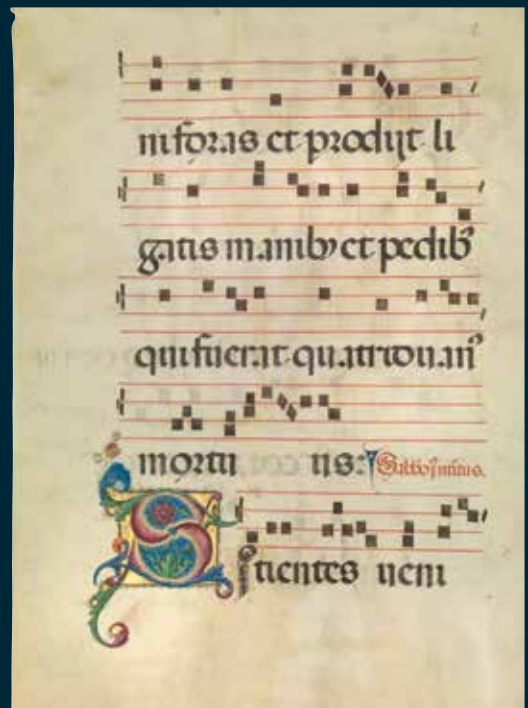 ni foras et prodijt li
gatis manibꝰ et pedibꝰ
qui fuerat quatriduanꝰ
mortu us:
Sitientes ueni